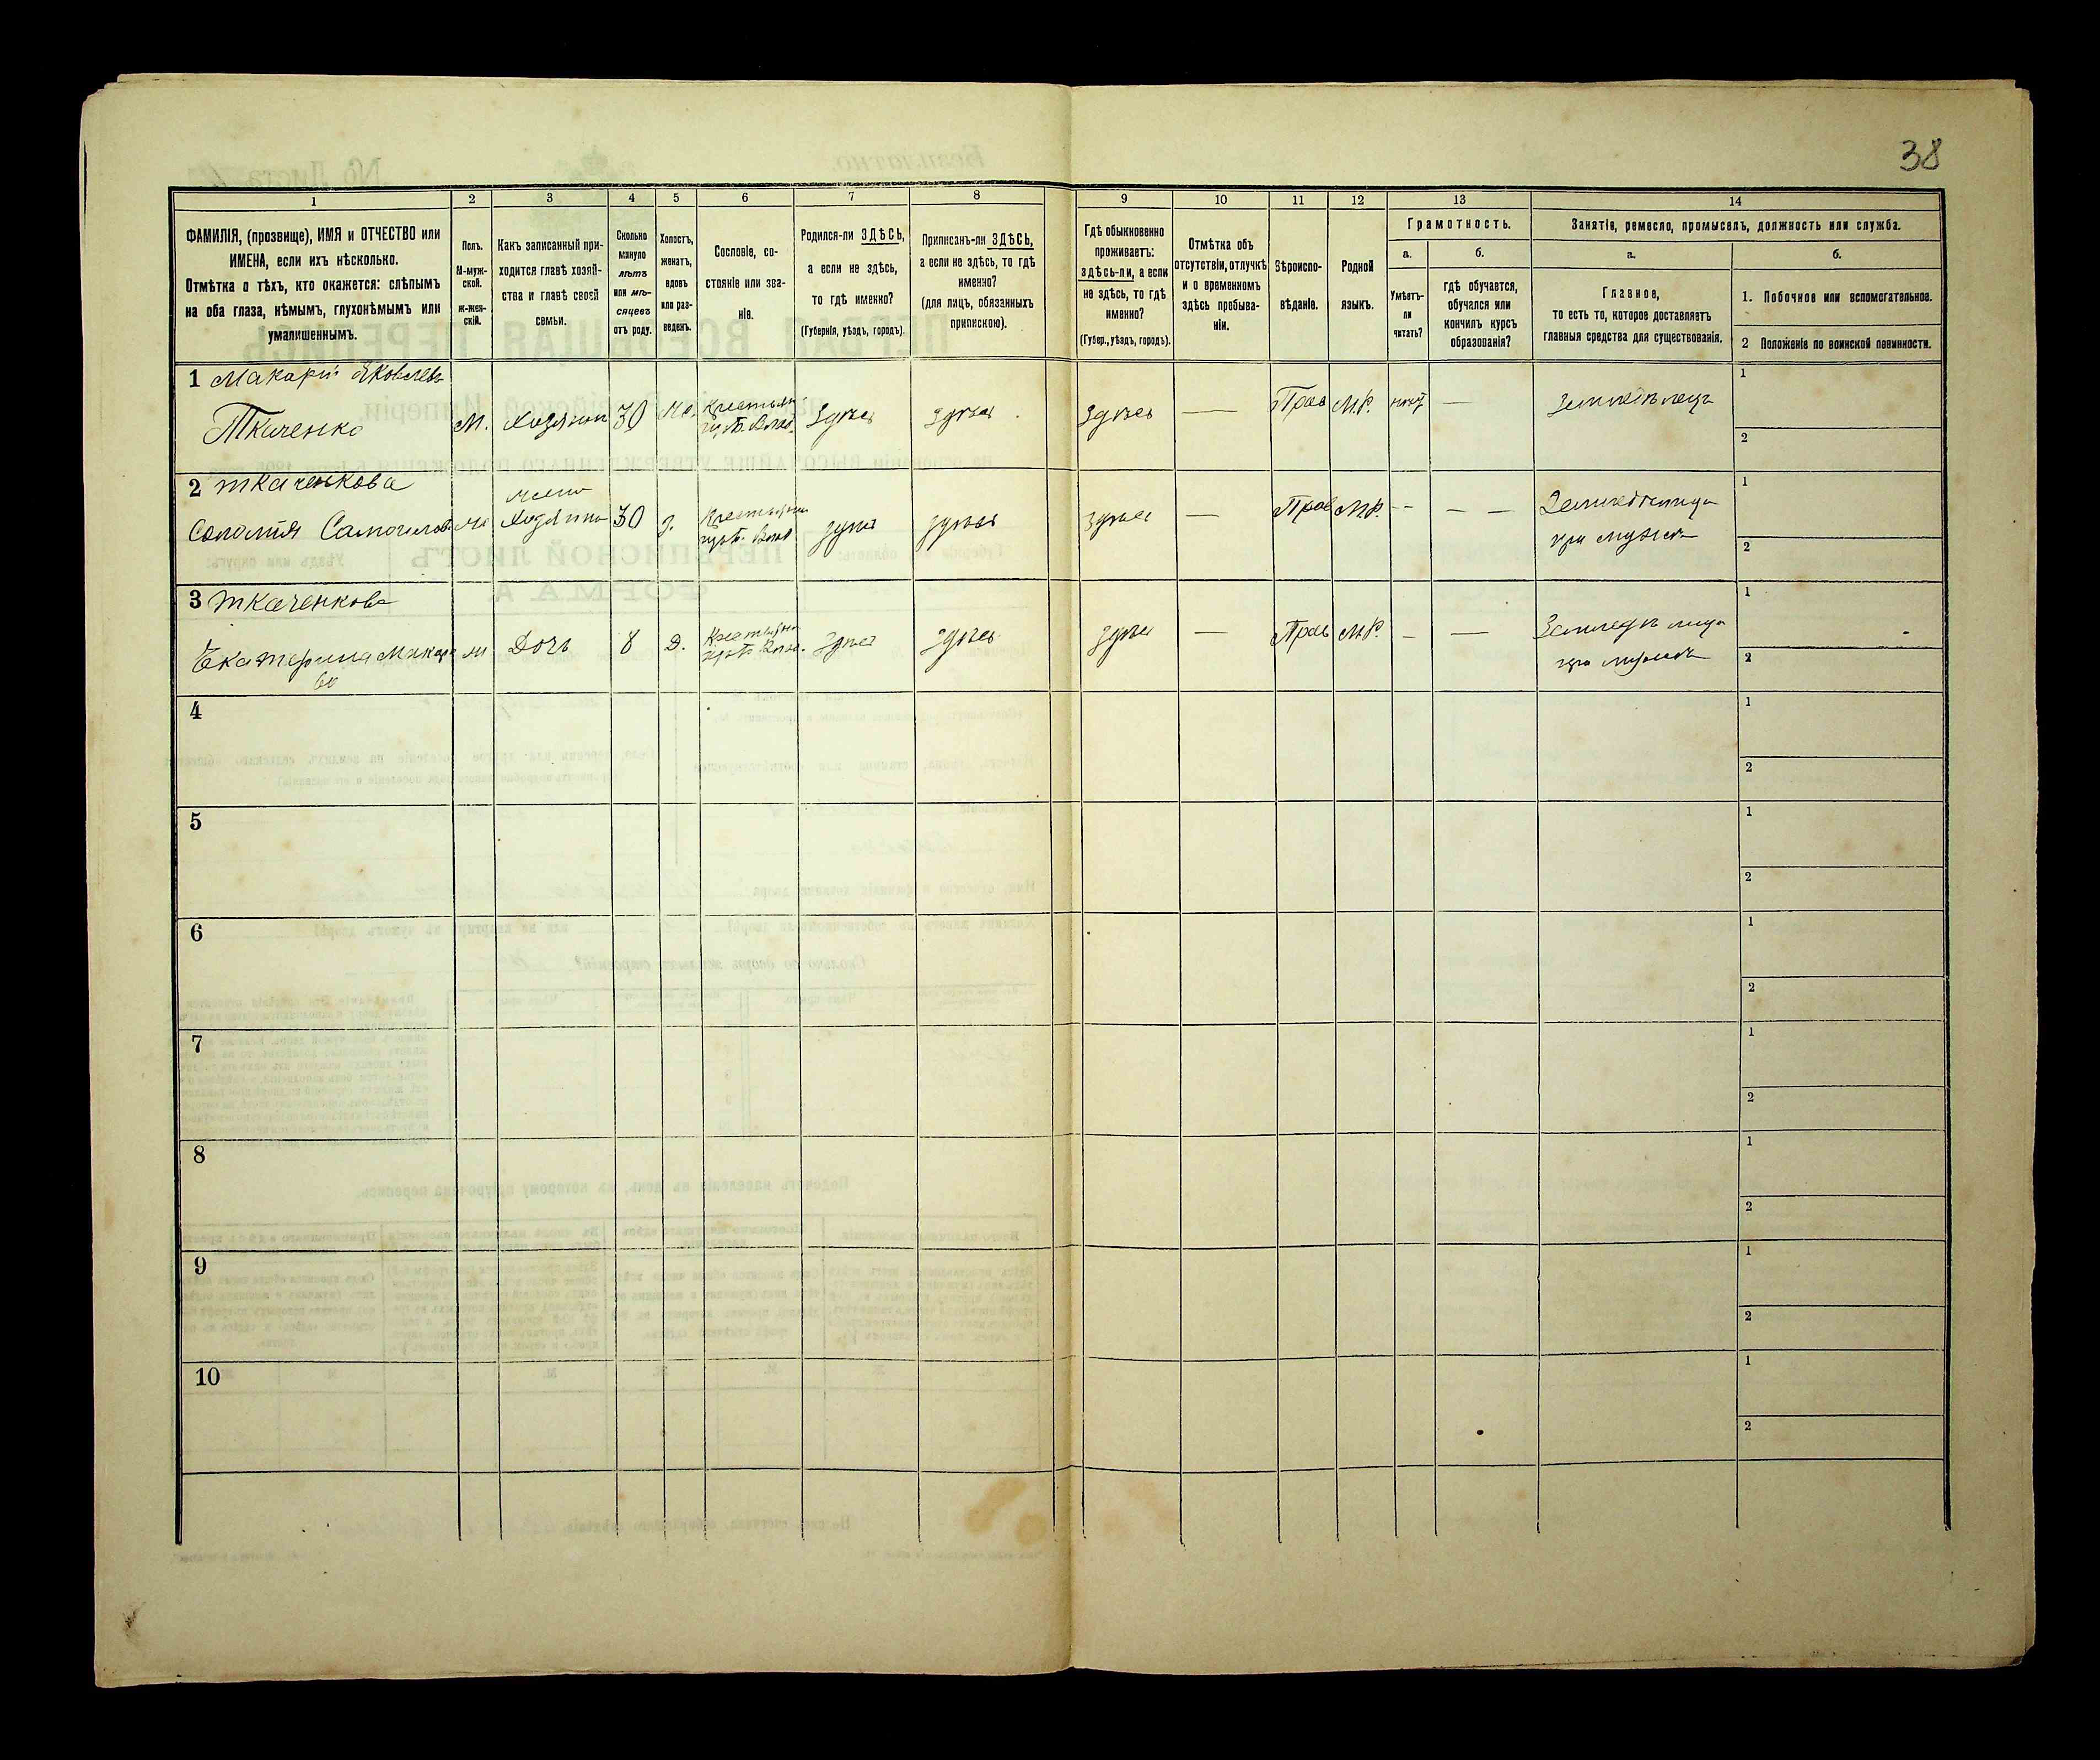 38
1
2
3
4
5
6
7
8
9
10
11
12
13
14
ФАМИЛІЯ, (прозвище), ИМЯ и ОТЧЕСТВО или
ИМЕНА, если ихъ нѣсколько.
Отмѣтка о тѣхъ, кто окажется: слѣпымъ
на оба глаза, нѣмымъ, глухонѣмымъ или
умалишеннымъ.
Полъ.
М-муж-
ской.
ж-жен-
скій.
Какъ записанный при-
ходится главѣ хозяй-
ства и главѣ своей
семьи.
Сколько
минуло
лѣтъ
или мѣ-
сяцевъ
отъ роду.
Холостъ,
женатъ,
вдовъ
или раз-
веденъ.
Сословіе, со-
стояніе или зва-
ніе.
Родился-ли ЗДѢСЬ,
а если не здѣсь,
то гдѣ именно?
(Губернія, уѣздъ, городъ).
Приписанъ-ли ЗДѢСЬ,
а если не здѣсь, то гдѣ
именно?
(для лицъ, обязанныхъ
припискою).
Гдѣ обыкновенно
проживаетъ:
здѣсь-ли, а если
не здѣсь, то гдѣ
именно?
(Губер., уѣздъ, городъ).
Отмѣтка объ
отсутствіи, отлучкѣ
и о временномъ
здѣсь пребыва-
ніи.
Вѣроиспо-
вѣданіе.
Родной
языкъ.
Грамотность.
а.
Умѣетъ-
ли
читать?
б.
гдѣ обучается,
обучался или
кончилъ курсъ
образованія?
Занятіе, ремесло, промыселъ, должность или служба.
а.
Главное,
то есть то, которое доставляетъ
главныя средства для существованія.
б.
1. Побочное или вспомогательное.
2 Положеніе по воинской повинности.
1 Макарій Яковлевъ
Ткаченко
М.
Хозяинъ
30
Здѣсь
здѣсь
здѣсь
—
Прав
М.Р.
—
Земледѣлецъ
1
2
2 Ткаченкова
Соломія Самойлов
жена
Хозяина
30
з.
здѣсь
здѣсь
здѣсь
Прав
М.Р.
— —
при мужѣ
1
2
3 Ткаченкова
Екатерина Макаро
ва
Дочь
8
Д.
здѣсь
здѣсь
здѣсь
—
Прав
М.Р.
–
—
1
2
4
1
2
5
1
2
6
1
2
7
1
2
8
1
2
9
1
2
10
1
2